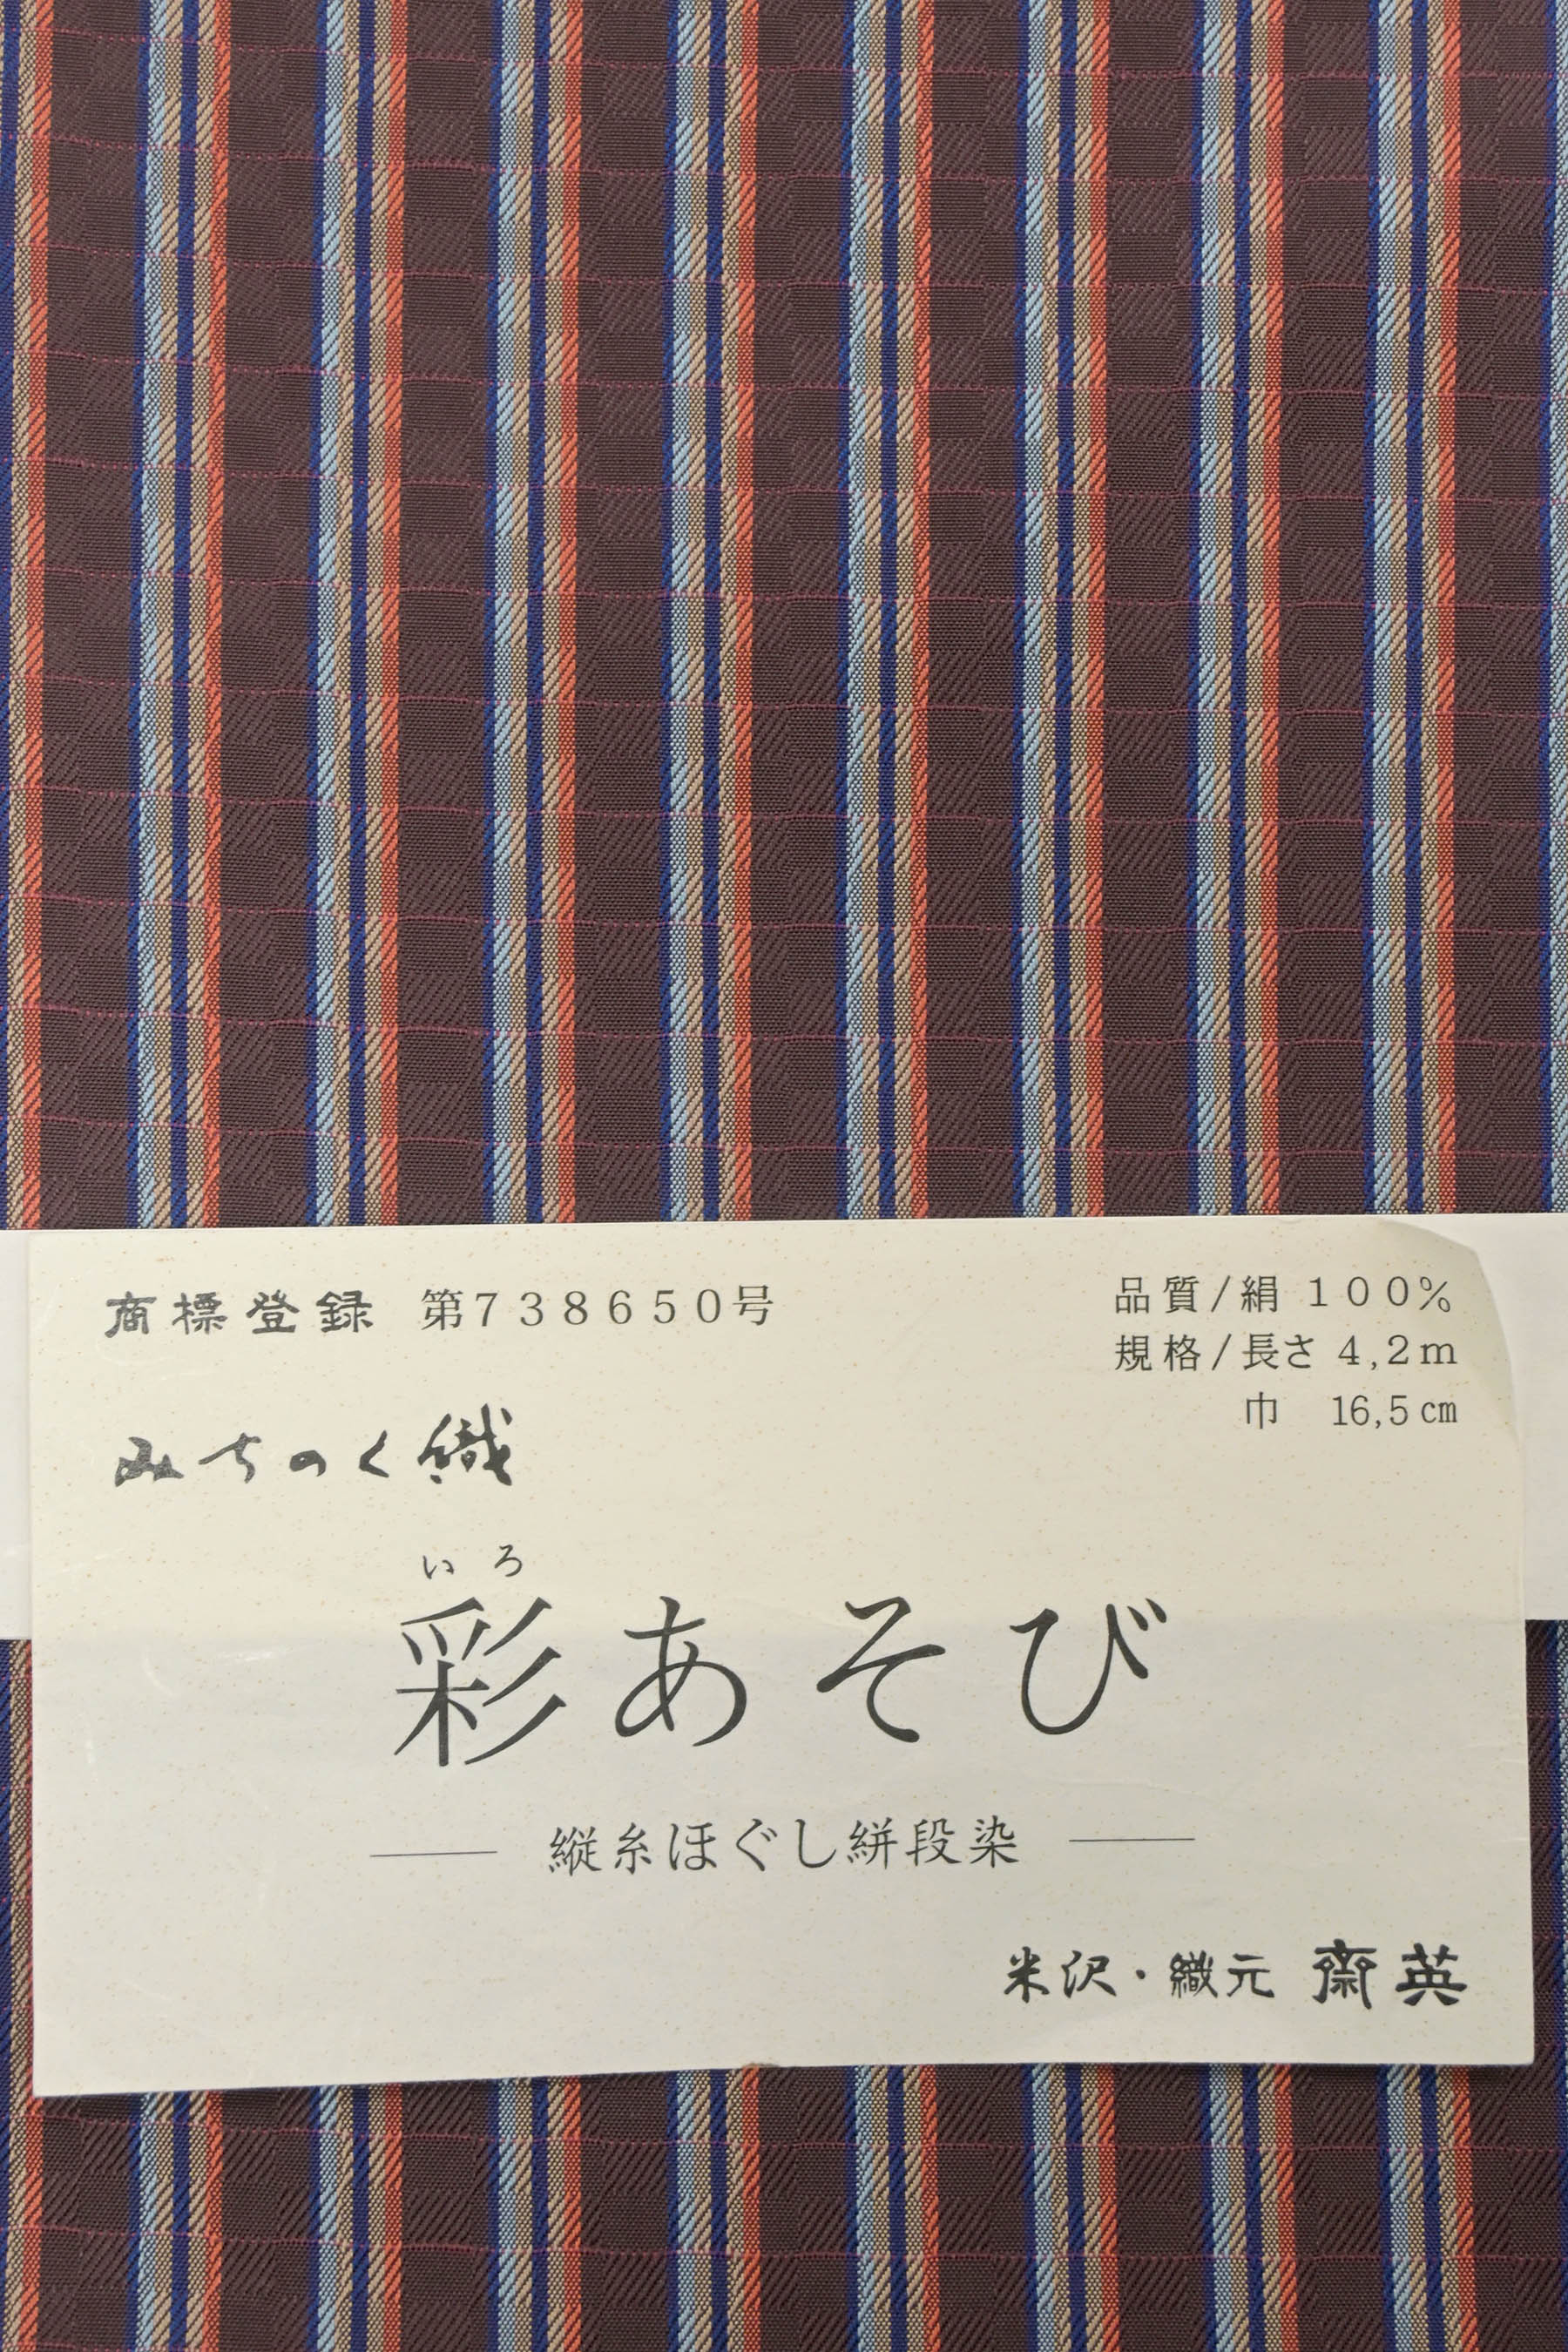 商標登録 第738650号
品質/絹 100%
規格/長さ 4,2m
巾 16,5cm
みちのく織
いろ
彩あそび
縦糸ほぐし絣段染
米沢・織元 齋英